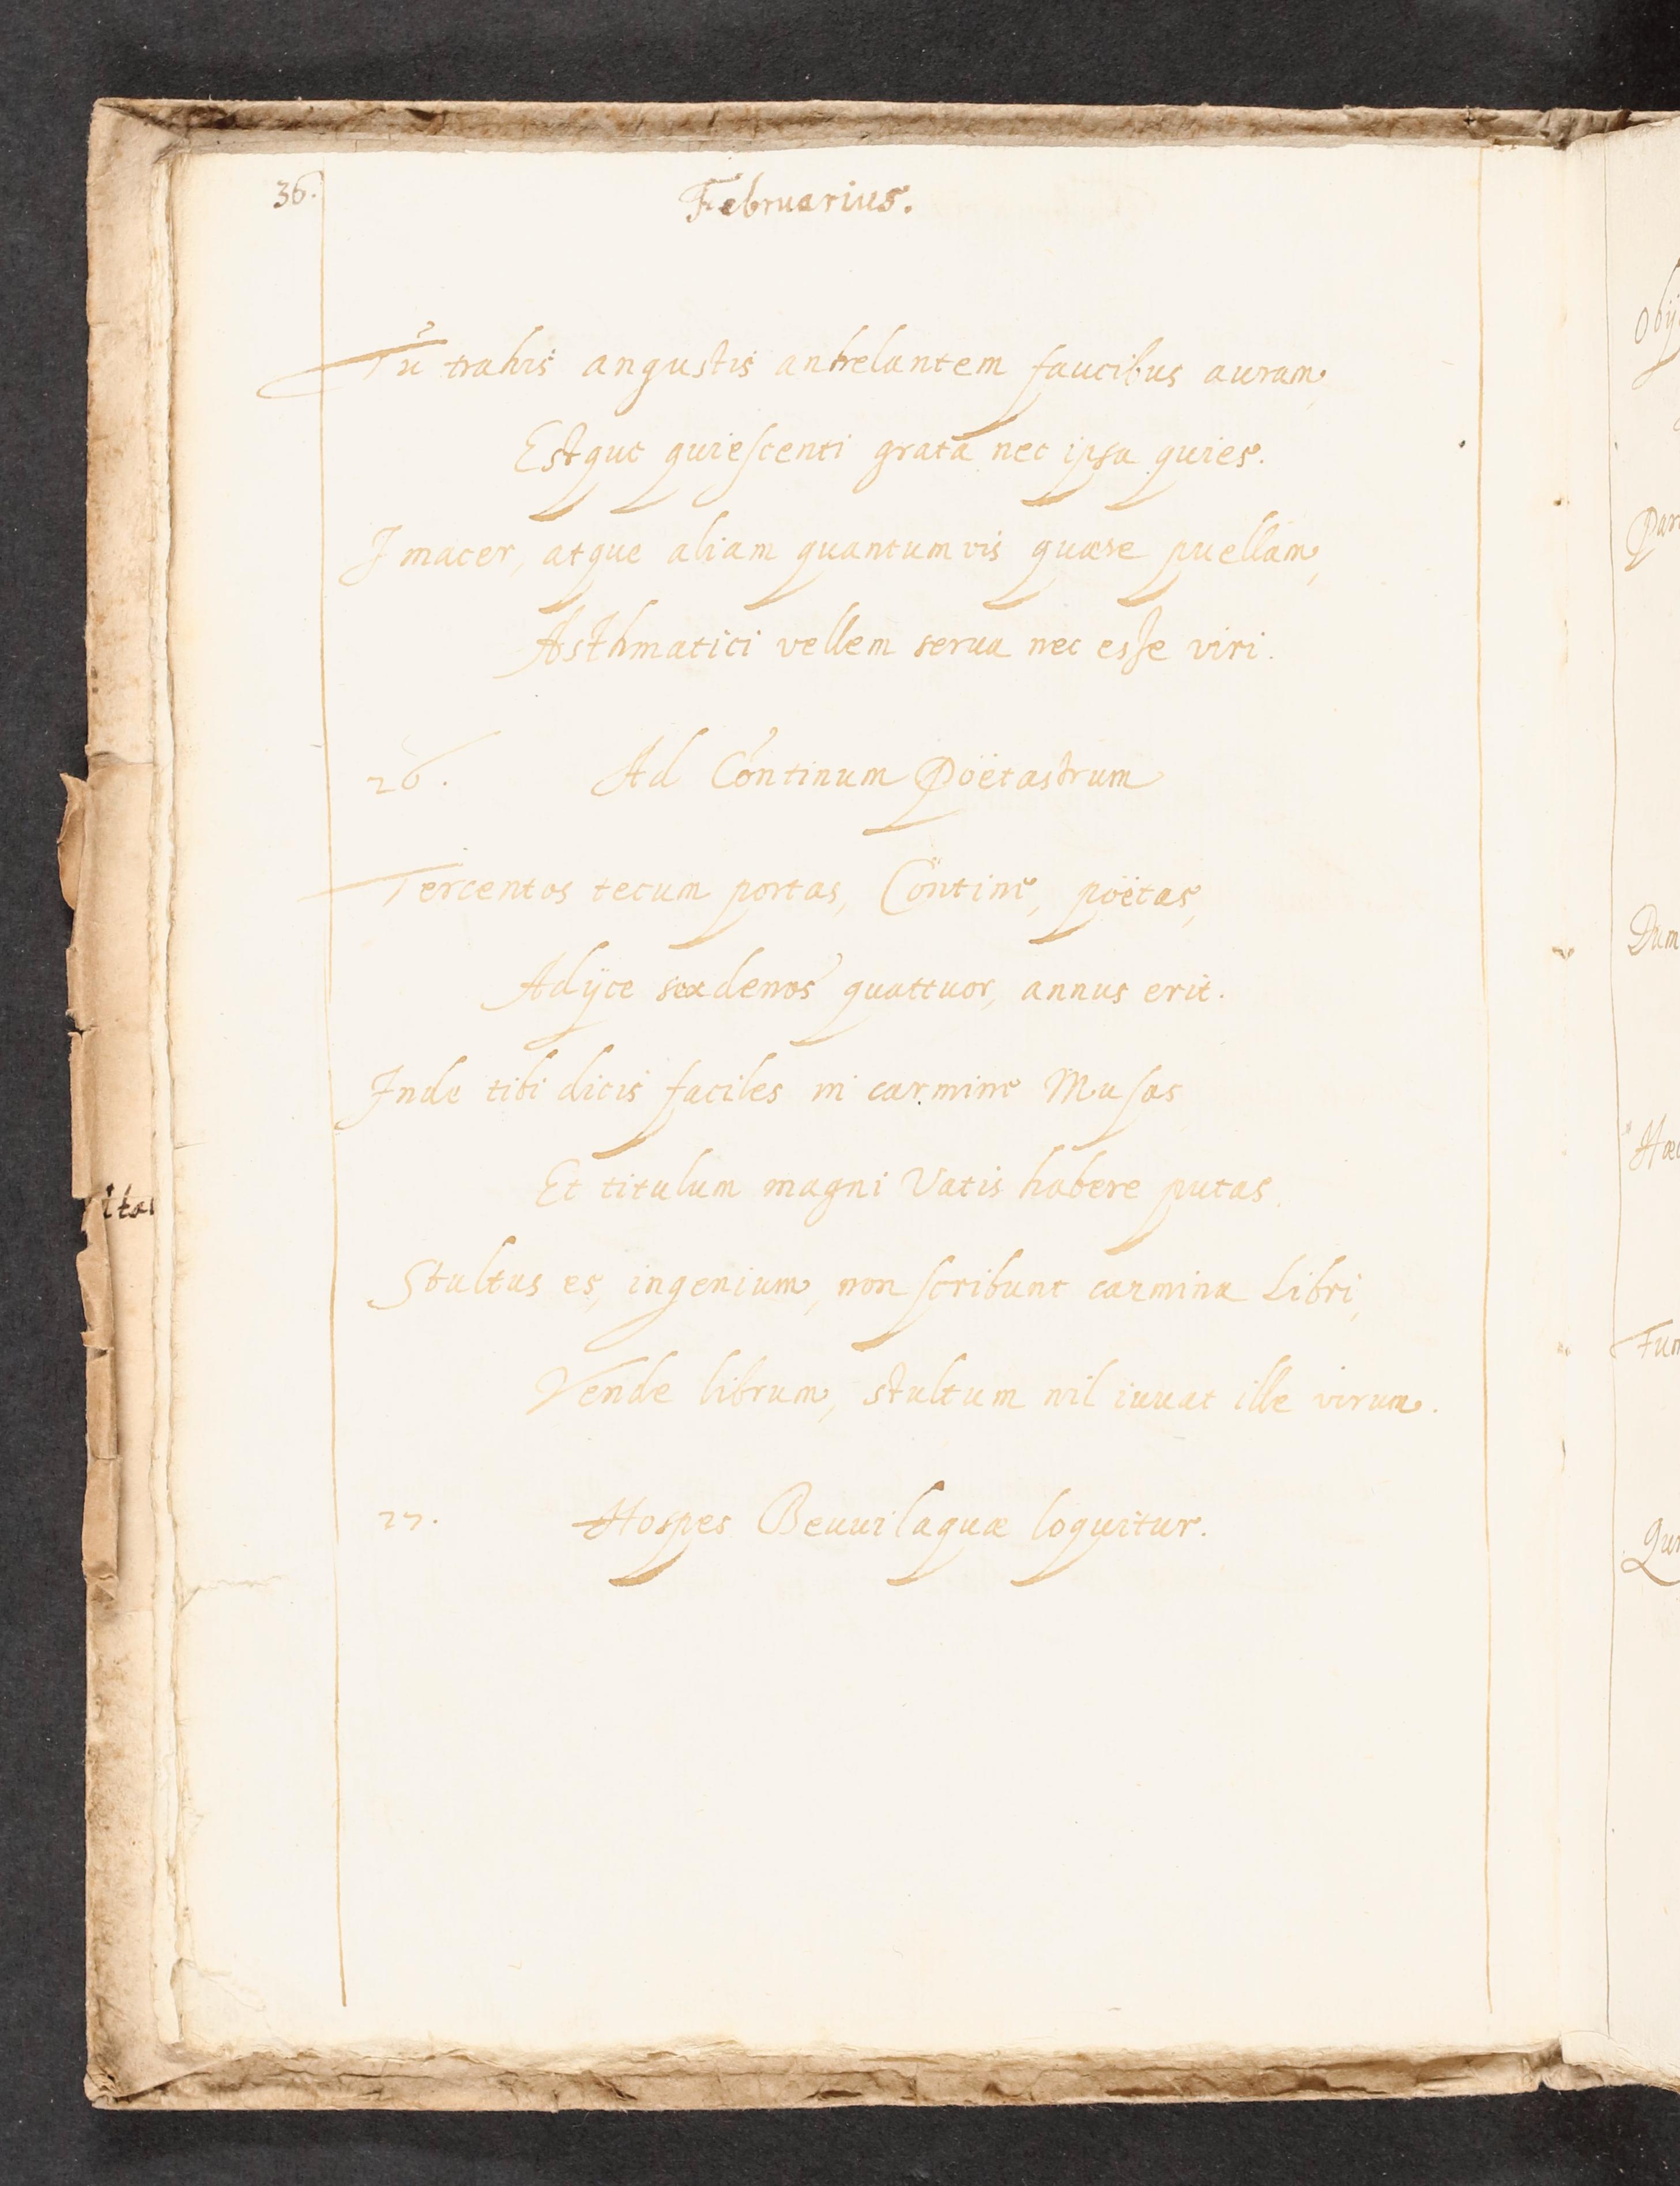 36.
Februarius.
Tu trahis angustis anhelantem faucibus auram,
Estque quiescenti grata nec ipsa quies.
I macer, atque aliam quantumvis quære puellam,
Asthmatici vellem serua nec esse viri.
26. Ad Continum Poëtastrum
Tercentos tecum portas, Contine, poëtas,
Adijce sexdenos quattuor, annus erit.
Inde tibi dicis faciles in carmine Musas
Et titulum magni Vatis habere putas.
Stultus es, ingenium, non scribunt carmina Libri,
Vende librum, stultum nil iuuat ille virum.
27. Hospes Beuuilaquæ loquitur.
Dum